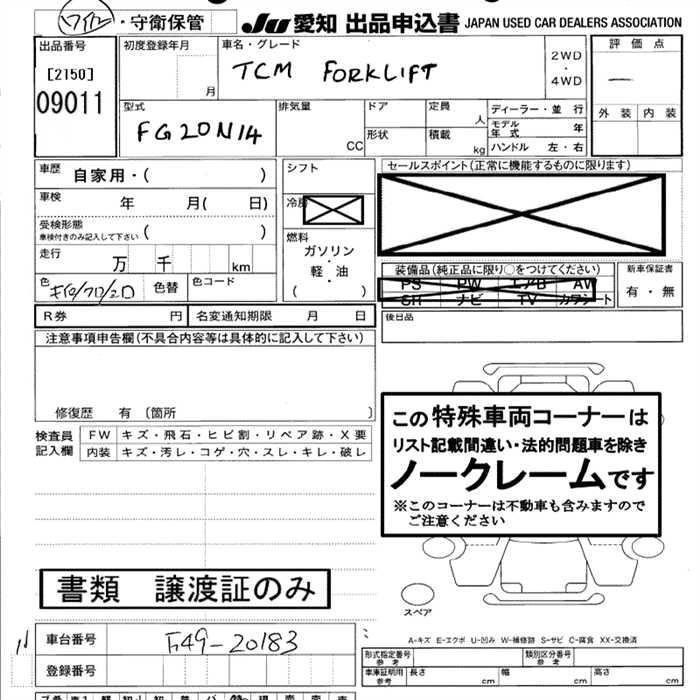 ・守衛保管 JU 愛知 出品申込書 JAPAN USED CAR DEALERS ASSOCIATION
出品番号
[2150]
09011
初度登録年月
月
車名・グレード
TCM FORKLIFT
2WD
・
4WD
評価点
—
外装 内装
型式
FG20N14
排気量
CC
ドア
形状
定員
人
積載
kg
ディーラー・並 行
モデル年式 年
ハンドル 左・右
車歴 自家用・( )
車検 年 月( 日)
受検形態
車検付きのみ記入して下さい ( )
走行 万 千 km
色 色替 色コード
シフト
冷房
燃料
ガソリン
・
軽・油
( )
セールスポイント(正常に機能するものに限ります)
装備品(純正品に限り○をつけてください)
PS PW エアB AW
SR ナビ TV カワシート
新車保証書
有・無
R券 円 名変通知期限 月 日
後日品
注意事項申告欄(不具合内容等は具体的に記入して下さい)
修復歴 有 〔箇所 〕
検査員
記入欄
FW キズ・飛石・ヒビ割・リペア跡・X要
内装 キズ・汚レ・コゲ・穴・スレ・キレ・破レ
この特殊車両コーナーは
リスト記載間違い・法的問題車を除き
ノークレームです
※このコーナーは不動車も含みますので
ご注意ください
書類 譲渡証のみ
スペア
A-キズ E-エクボ U-凹み W-補修跡 S-サビ C-腐食 XX-交換済
車台番号 F49-20183
登録番号
型式指定番号
参考
類別区分番号
参考
車庫証明用
参考
長さ cm 幅 cm 高さ cm